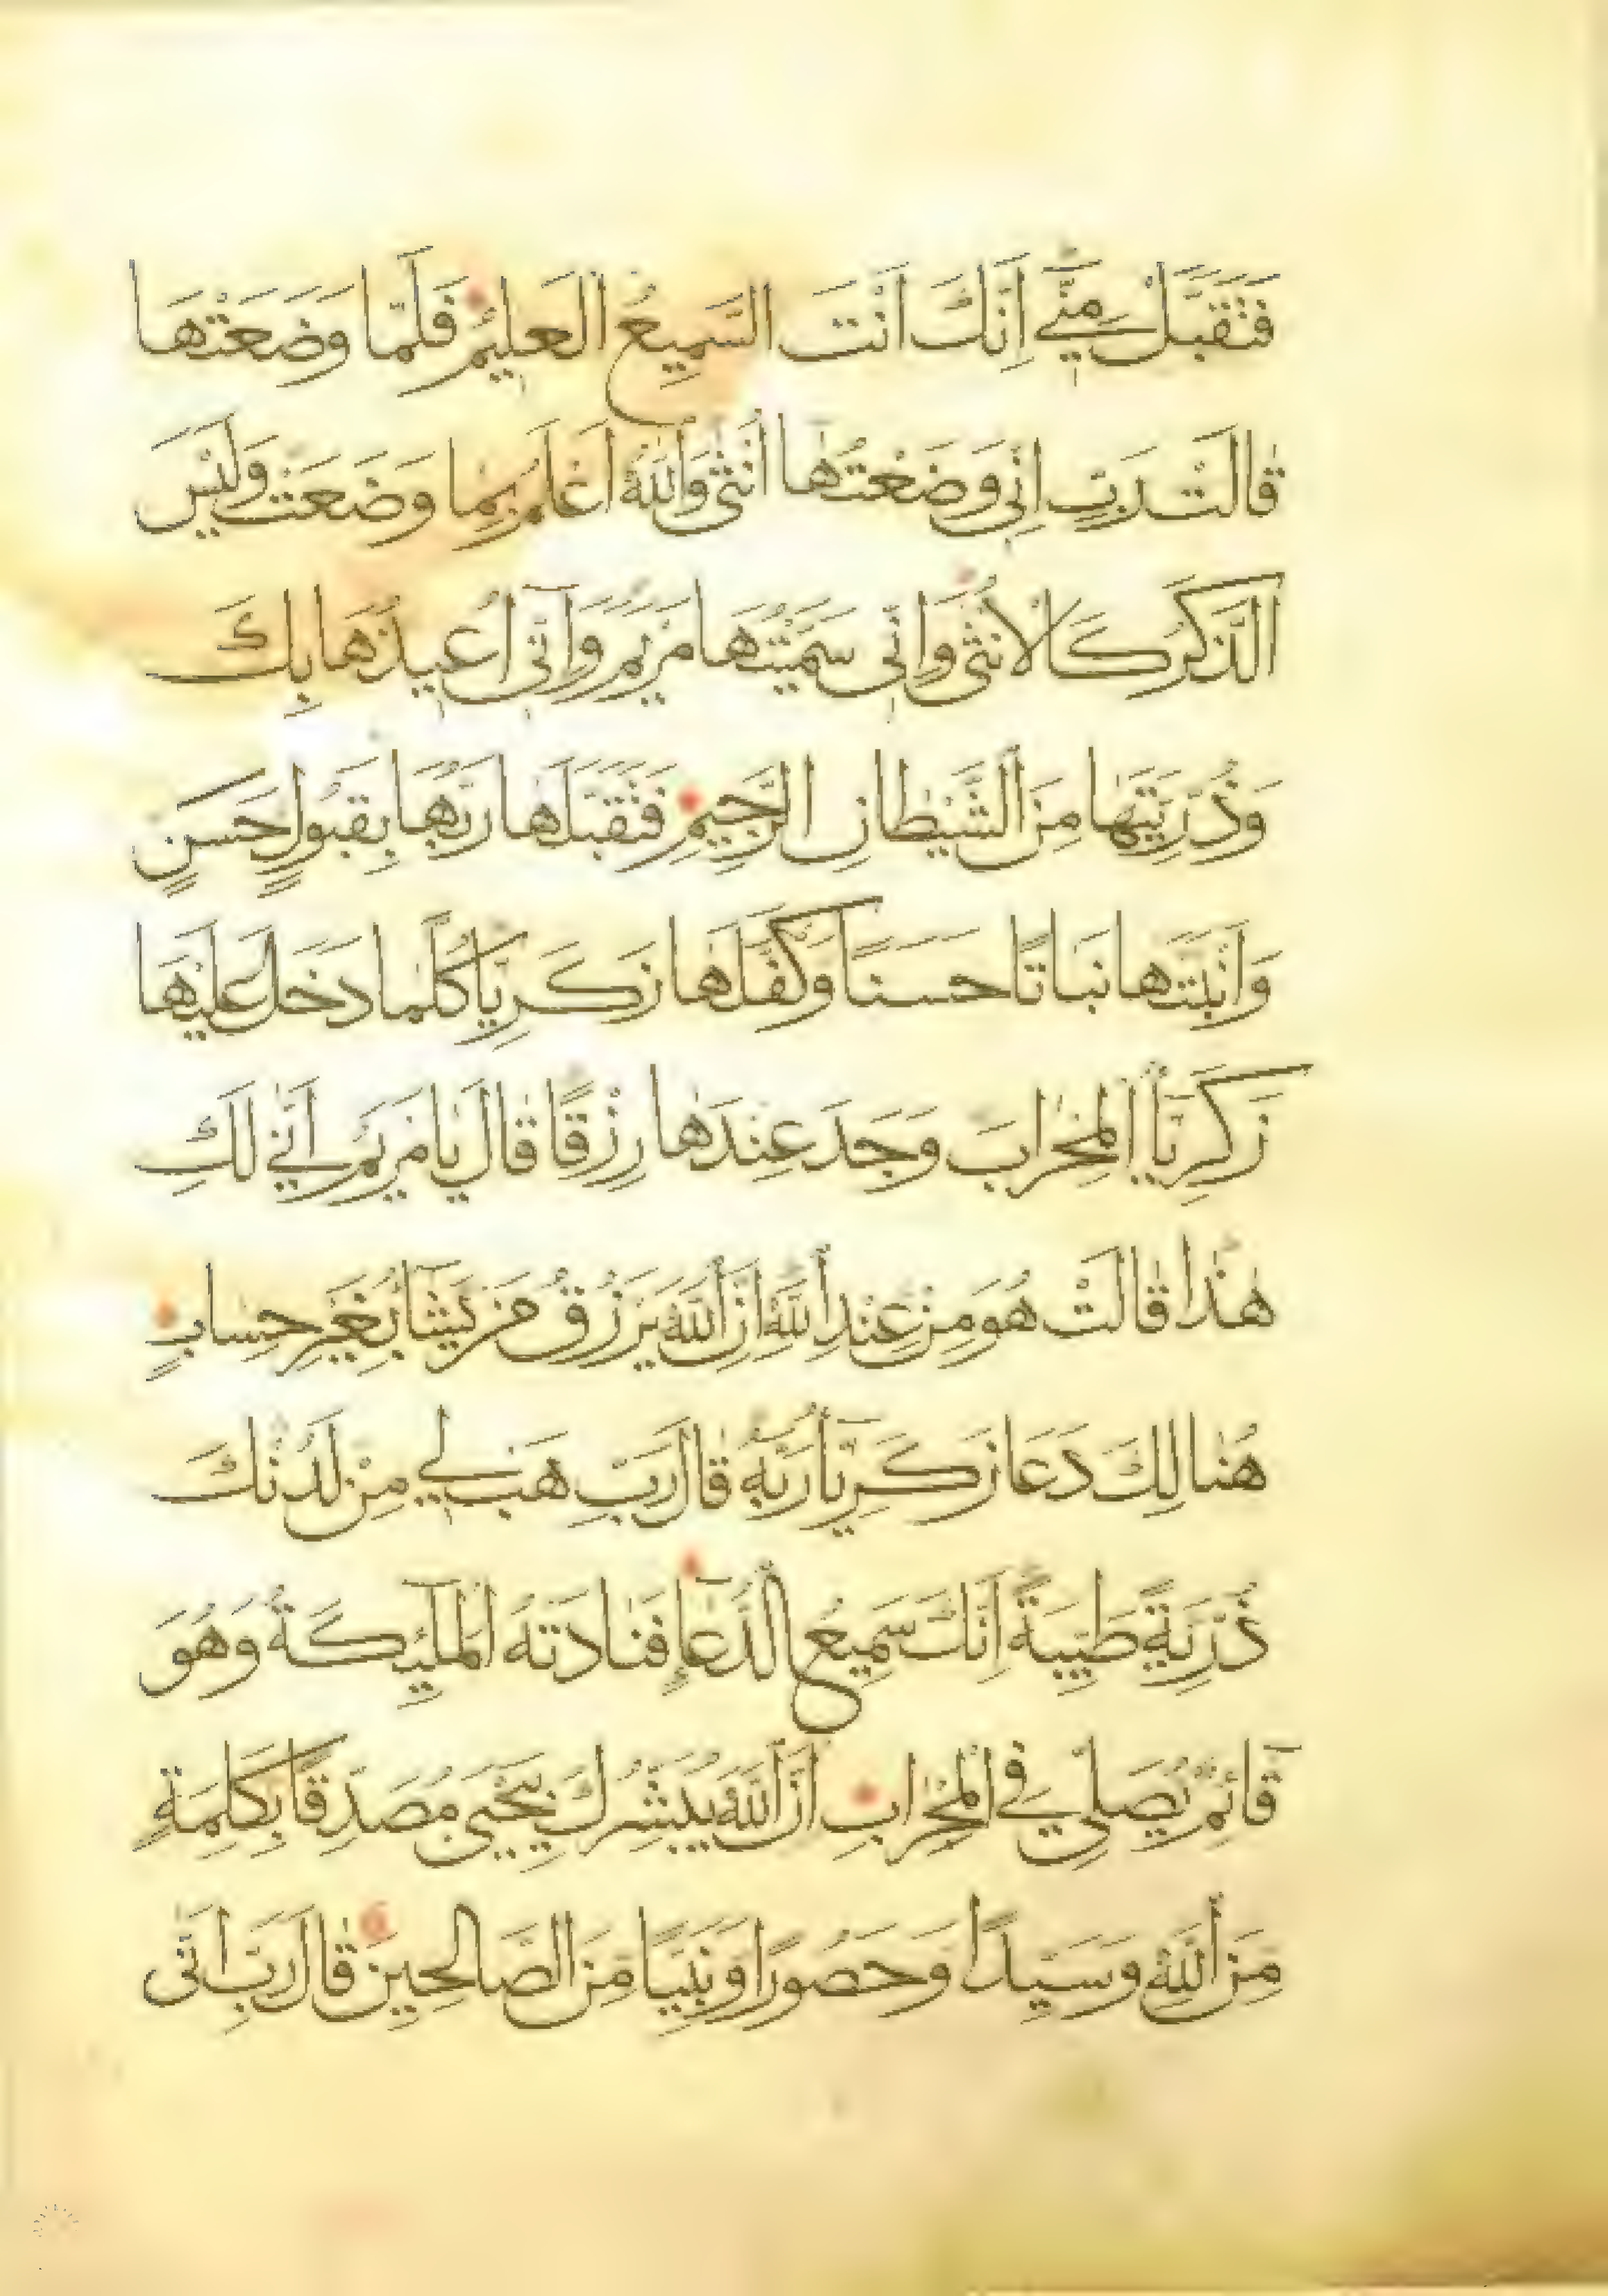 فَتَقَبَّلْ مِنّي اِنَّكَ اَنْتَ السَّميعُ العَليمُ فَلَمّا وَضَعَتْهَا
قالَتْ رَبِّ اِنّي وَضَعْتُها اُنْثى وَاللهُ اَعْلَمُ بِما وَضَعَتْ وَلَيْسَ
الذَّكَرُ كَالاُنْثى وَاِنّي سَمَّيْتُهَا مَرْيَمَ وَاِنّي اُعيذُهَا بِكَ
وَذُرِّيَّتَهَا مِنَ الشَّيْطانِ الرَّجيمِ فَتَقَبَّلَها رَبُّهَا بِقَبُولٍ حَسَنٍ
وَاَنْبَتَها نَبَاتًا حَسَنًا وَكَفَّلَها زَكَرِيَّا كُلَّما دَخَلَ عَلَيْهَا
زَكَرِيَّا المِحْرابَ وَجَدَ عِنْدَها رِزْقًا قالَ يا مَرْيَمُ اَنّي لَكِ
هٰذا قالَتْ هُوَ مِنْ عِنْدِ اللهِ اِنَّ اللهَ يَرْزُقُ مَنْ يَشَآءُ بِغَيْرِ حِسابٍ
هُنالِكَ دَعَا زَكَرِيَّا رَبَّهُ قالَ رَبِّ هَبْ لي مِنْ لَدُنْكَ
ذُرِّيَّةً طَيِّبَةً اِنَّكَ سَميعُ الدُّعَآءِ فَنادَتْهُ المَلٓئِكَةُ وَهُوَ
قآئِمٌ يُصَلّي فِي المِحْرابِ اَنَّ اللهَ يُبَشِّرُكَ بِيَحْيىَ مُصَدِّقًا بِكَلِمَةٍ
مِنَ اللهِ وَسَيِّدًا وَحَصُورًا وَنَبِيًّا مِنَ الصَّالِحينَ قالَ رَبِّ اَنّى